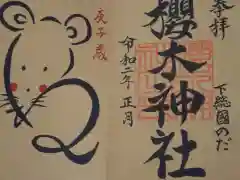 奉拝
櫻木神社
下総國のだ
令和二年正月
庚子歳